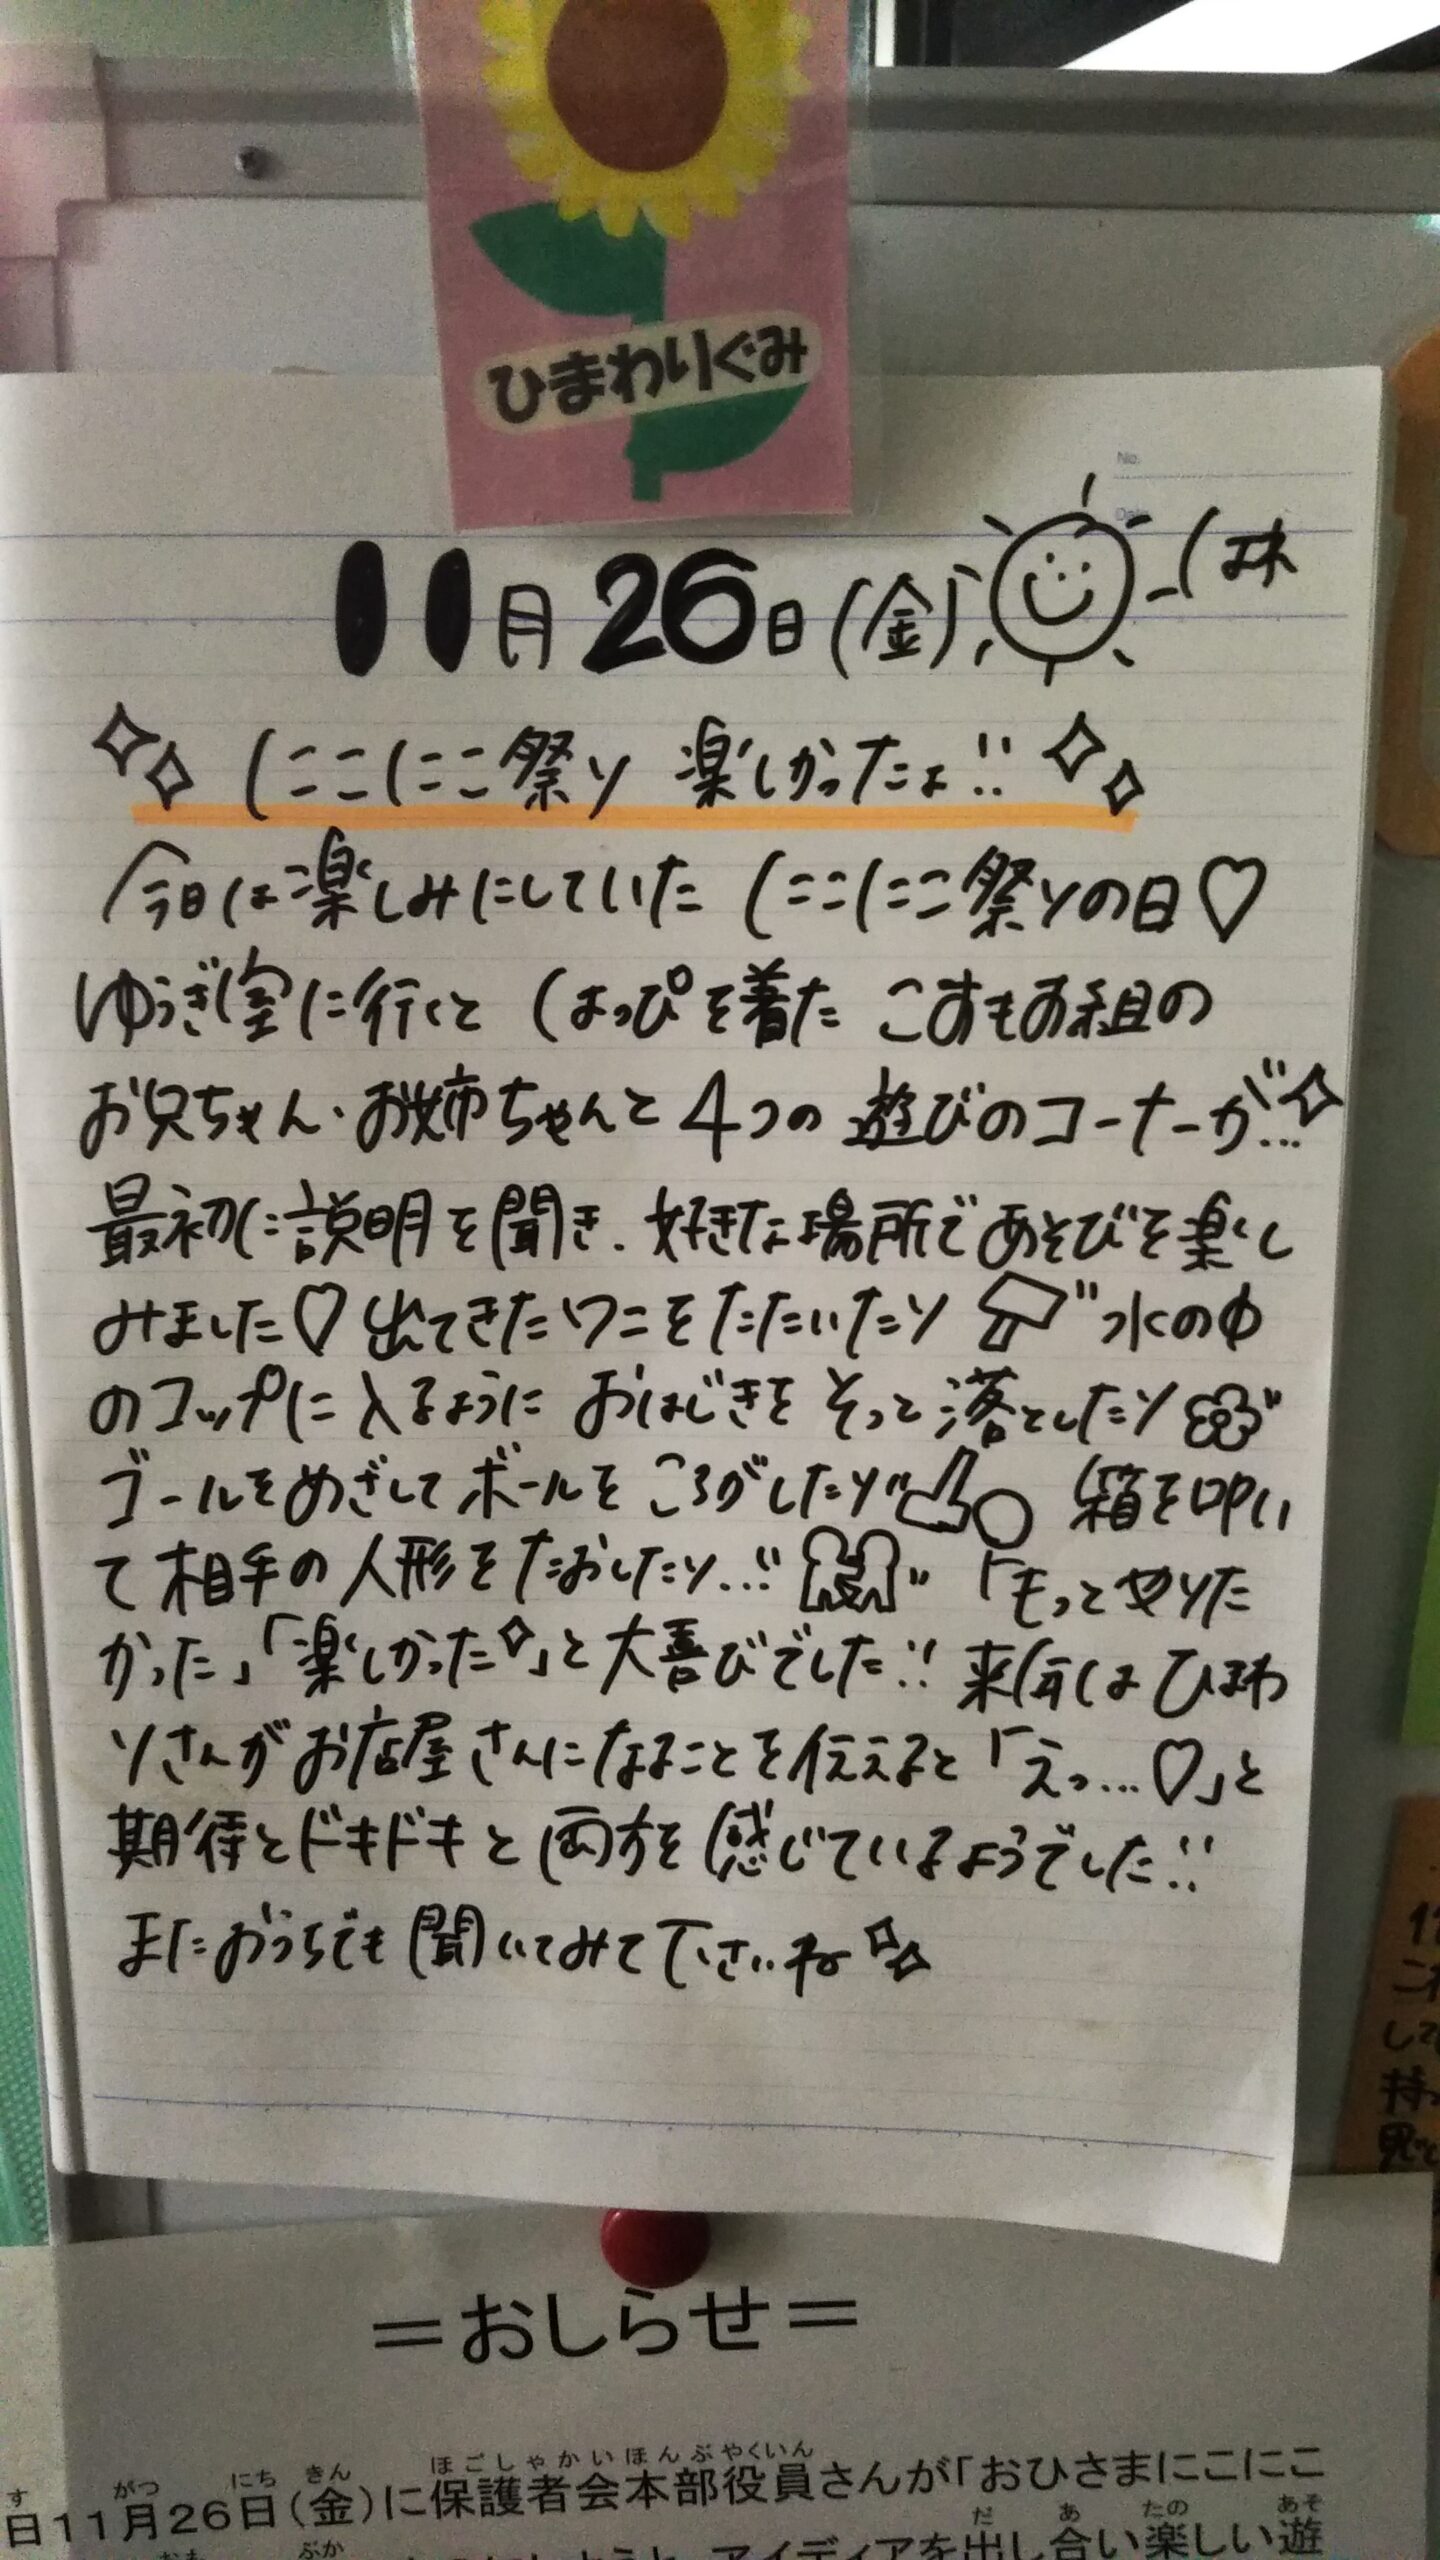 ひまわりぐみ
No.
Date
11月26日(金)
にこにこ祭り 楽しかったよ!!
今日は楽しみにしていた にこにこ祭りの日♡
ゆうぎ室に行くと はっぴを着た こすもす組の
お兄ちゃん・お姉ちゃんと 4つの 遊びのコーナーが…
最初に説明を聞き、好きな場所であそびを楽し
みました♡ 出てきたワニをたたいたり 水の中
のコップに入るように おはじきを そっと落としたり
ゴールをめざして ボールを ころがしたり 箱を叩い
て相手の人形をたおしたり…!! 「もっとやりた
かった」「楽しかった」と大喜びでした!! 来年は ひまわ
りさんがお店屋さんになることを伝えると「えっ…♡」と
期待とドキドキと両方を感じているようでした!!
またおうちでも聞いてみて下さいね
=おしらせ=
す がつ にち きん ほごしゃかいほんぶやくいん
日11月26日(金)に保護者会本部役員さんが「おひさまにこにこ
だ あ たの あそ
アイディアを出し合い楽しい遊